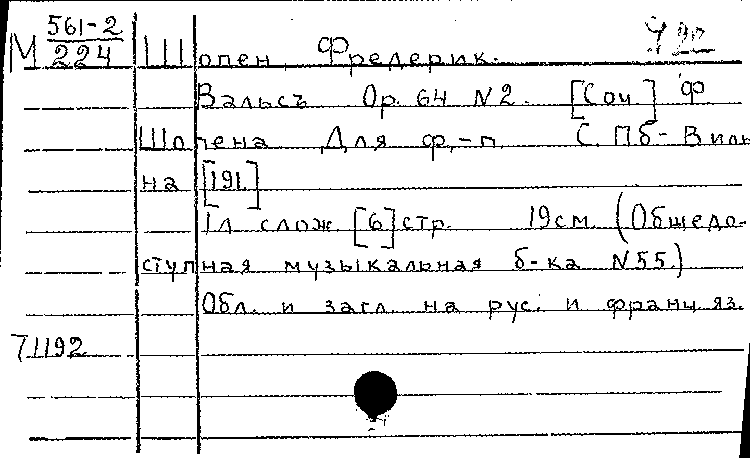 М 561-2/224 Шопен, Фредерик.
Вальсъ Ор. 64 N2. [Соч.] Ф.
Шопена Для ф.-п. С.Пб-Виль-
на [191.]
1 л слож. [6] стр. 19см. (Общедо-
ступная музыкальная б-ка N55.)
Обл. и загл. на рус. и франц. яз.
71192